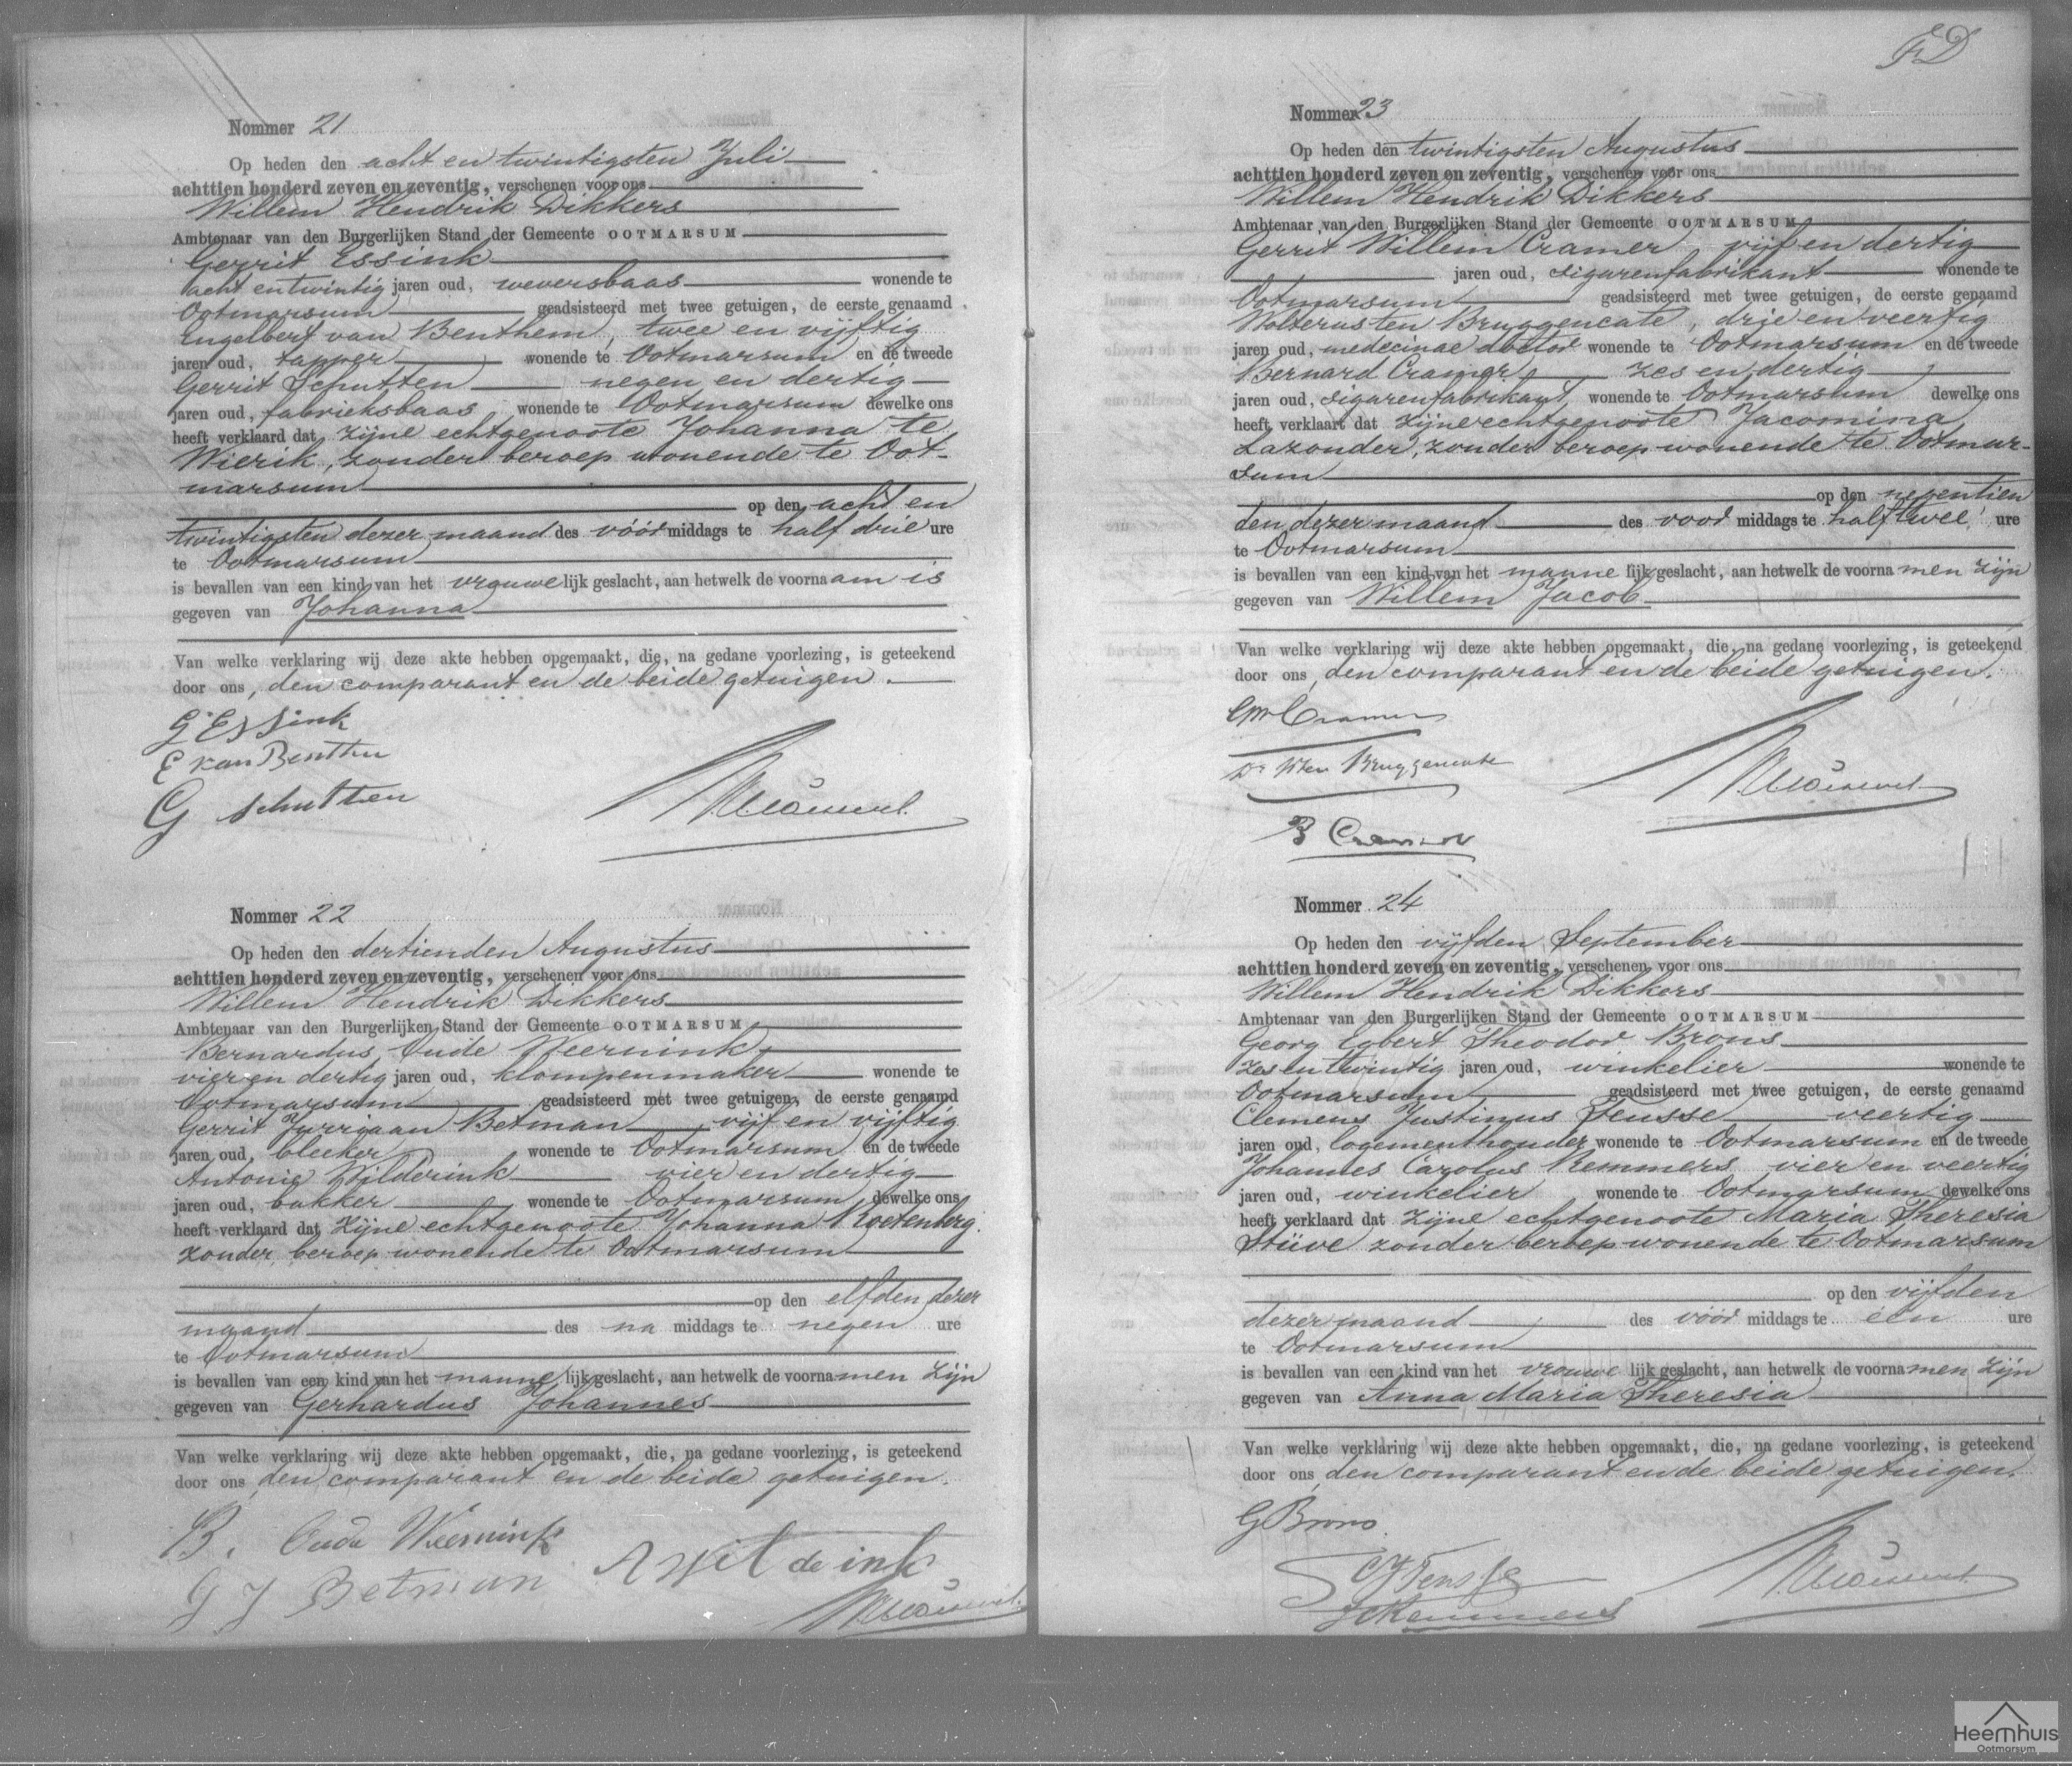 Nommer 21
Op heden den acht en twintigsten Juli
achttien honderd zeven en zeventig, verschenen voor ons
Willem Hendrik Dikkers
Ambtenaar van den Burgerlijken Stand der Gemeente OOTMARSUM
Gerrit Essink
acht en twintig jaren oud, weversbaas wonende te
Ootmarsum geadsisteerd met twee getuigen, de eerste genaamd
Engelbert van Benthem, twee en vijftig
jaren oud, tapper wonende te Ootmarsum en de tweede
Gerrit Schutten negen en dertig
jaren oud, fabrieksbaas wonende te Ootmarsum dewelke ons
heeft verklaard dat zijne echtgenoote Johanna te
Wierik, zonder beroep wonende te Oot-
marsum
op den acht en
twintigsten dezer maand des vóór middags te half drie ure
te Ootmarsum
is bevallen van een kind van het vrouwelijk geslacht, aan hetwelk de voornaam is
gegeven van Johanna
Van welke verklaring wij deze akte hebben opgemaakt, die, na gedane voorlezing, is geteekend
door ons, den comparant en de beide getuigen.
G Essink
E van Benthem
G Schutten
Nommer 22
Op heden den dertienden Augustus
achttien honderd zeven en zeventig, verschenen voor ons
Willem Hendrik Dikkers
Ambtenaar van den Burgerlijken Stand der Gemeente OOTMARSUM
Bernardus Oude Weernink
vier en dertig jaren oud, klompenmaker wonende te
Ootmarsum geadsisteerd met twee getuigen, de eerste genaamd
Gerrit Jurrjaan Betman vijf en vijftig
jaren oud, bleeker wonende te Ootmarsum en de tweede
Antonie Wilderink vier en dertig
jaren oud, bakker wonende te Ootmarsum dewelke ons
heeft verklaard dat zijne echtgenoote Johanna Roetenberg
zonder beroep wonende te Ootmarsum
op den elfden dezer
maand des na middags te negen ure
te Ootmarsum
is bevallen van een kind van het mannelijk geslacht, aan hetwelk de voornamen zijn
gegeven van Gerhardus Johannes
Van welke verklaring wij deze akte hebben opgemaakt, die, na gedane voorlezing, is geteekend
door ons, den comparant en de beide getuigen.
B. Oude Weernink
G J Betman A Wilderink
Nommer 23
Op heden den twintigsten Augustus
achttien honderd zeven en zeventig, verschenen voor ons
Willem Hendrik Dikkers
Ambtenaar van den Burgerlijken Stand der Gemeente OOTMARSUM
Gerrit Willem Cramer vijf en dertig
jaren oud, sigarenfabrikant wonende te
Ootmarsum geadsisteerd met twee getuigen, de eerste genaamd
Wolterus ten Bruggencate, drie en veertig
jaren oud, medecinae doctor wonende te Ootmarsum en de tweede
Bernard Cramer zes en dertig
jaren oud, sigarenfabrikant, wonende te Ootmarsum dewelke ons
heeft verklaard dat zijne echtgenoote Jacomina
Lazonder, zonder beroep wonende te Ootmar-
sum
op den negentien
den dezer maand des voor middags te half twee ure
te Ootmarsum
is bevallen van een kind van het mannelijk geslacht, aan hetwelk de voornamen zijn
gegeven van Willem Jacob
Van welke verklaring wij deze akte hebben opgemaakt, die, na gedane voorlezing, is geteekend
door ons, den comparant en de beide getuigen.
GW Cramer
Dr W ten Bruggencate
B Cramer
Nommer 24
Op heden den vijfden September
achttien honderd zeven en zeventig, verschenen voor ons
Willem Hendrik Dikkers
Ambtenaar van den Burgerlijken Stand der Gemeente OOTMARSUM
Georg Egbert Theodor Brons
zes en twintig jaren oud, winkelier wonende te
Ootmarsum geadsisteerd met twee getuigen, de eerste genaamd
Clemens Justinus Feusse veertig
jaren oud, logementhouder wonende te Ootmarsum en de tweede
Johannes Carolus Remmers vier en veertig
jaren oud, winkelier wonende te Ootmarsum dewelke ons
heeft verklaard dat zijne echtgenoote Maria Theresia
Stüve zonder beroep wonende te Ootmarsum
op den vijfden
dezer maand des vóór middags te één ure
te Ootmarsum
is bevallen van een kind van het vrouwelijk geslacht, aan hetwelk de voornamen zijn
gegeven van Anna Maria Theresia
Van welke verklaring wij deze akte hebben opgemaakt, die, na gedane voorlezing, is geteekend
door ons, den comparant en de beide getuigen.
G Brons
JC Remmers
Heemhuis
Ootmarsum